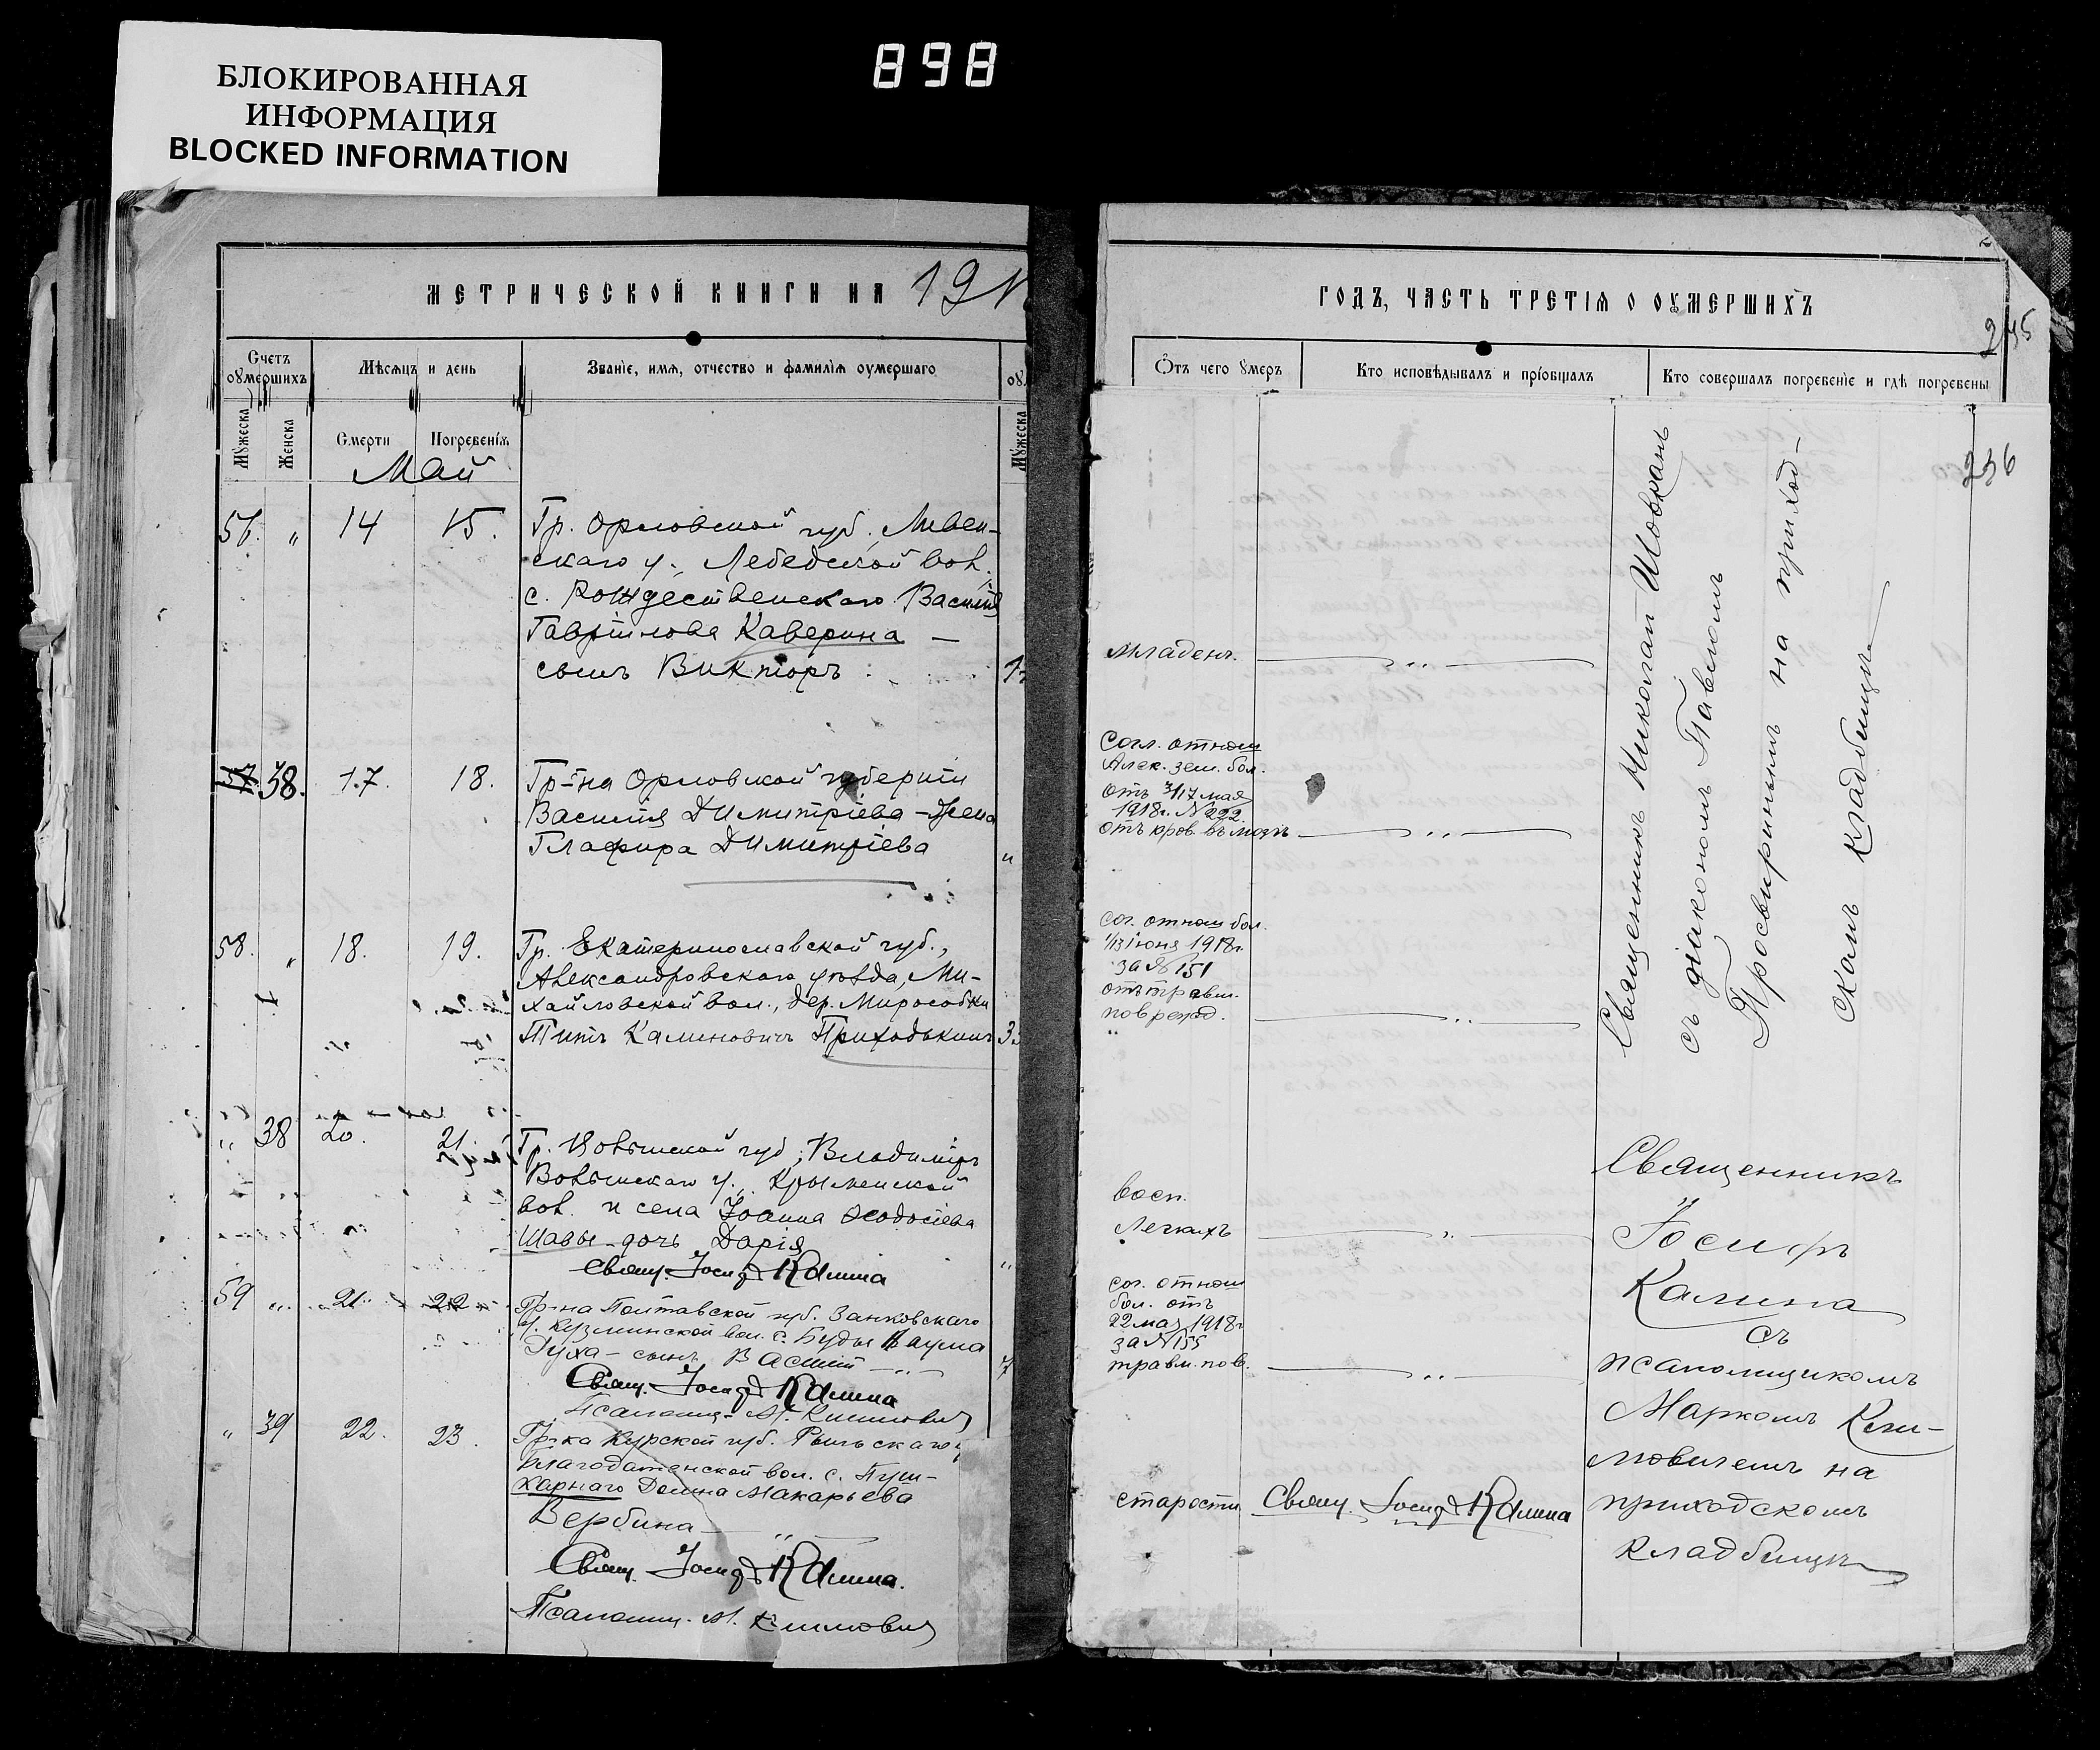 БЛОКИРОВАННАЯ
ИНФОРМАЦИЯ
BLOCKED INFORMATION
898
МЕТРИЧЕСКОЙ КНИГИ НА 191
Счетъ оумершихъ
Мѣсяцъ и день
Званіе, имя, отчество и фамилія оумершаго
Мужеска
Женска
Смерти
Погребенія
Мужеска
Май
56. „ 14 15. Гр. Орловской губ., Ливен-
скаго у., Лебедской вол.
с. Рождественскаго Василія
Гавріилова Каверина —
сынъ Викторъ
57 38. 17. 18. Гр-на Орловской губерніи
Василія Димитріева - жена
Глафира Димитріева „
58. „ 18. 19. Гр. Екатеринославской губ.,
Александровскаго уѣзда, Ми-
хайловской вол., дер. Мирославки
Титъ Калиновичъ Приходькинъ
„ 38 20. 21. Гр. Волынской губ., Владимір
Волынскаго у.,
вол. и села Іоанна Ѳеодосіева
Шавы - дочь Дарія „
Свящ. Іосифъ Калина
59 „ 21. 22 Гр-на Полтавской губ.
у. Кузминской вол. с. Буды Наума
сынъ Василій — „ — 7
Свящ. Іосифъ Калина
Псаломщ. М. Климович
„ 39 22. 23. Гр-ка Курской губ. Рыльскаго у
Благодатенской вол. с. Пуш-
карнаго Домна Макарьева
Вербина — „ —
Свящ. Іосифъ Калина.
Псаломщ. М. Климович
ГОДЪ, ЧАСТЬ ТРЕТІЯ О ОУМЕРШИХЪ
245
Отъ чего умеръ
Кто исповѣдывалъ и пріобщалъ
Кто совершалъ погребеніе и гдѣ погребены
236
младен. — „ —
Согл. отнош
Алек. зем. бол.
отъ 3/17 мая
1918г. N 222.
отъ кров. въ мозгъ — „ —
сог. отнош бол.
1/13 іюня 1918г.
за № 151
отъ травм.
поврежд. — „ —
Священникъ Николай Шовкань
съ діакономъ Павломъ
Просвиринымъ на приход-
скомъ кладбищѣ
восп.
легкихъ — „ —
сог. отнош
бол. отъ
22 мая 1918г
за № 155
травм. пов. — „ —
старости Свящ. Іосифъ Калина
Священникъ
Іосифъ
Калина
съ
псаломщикомъ
Маркомъ Кли-
мовичемъ на
приходскомъ
кладбищѣ